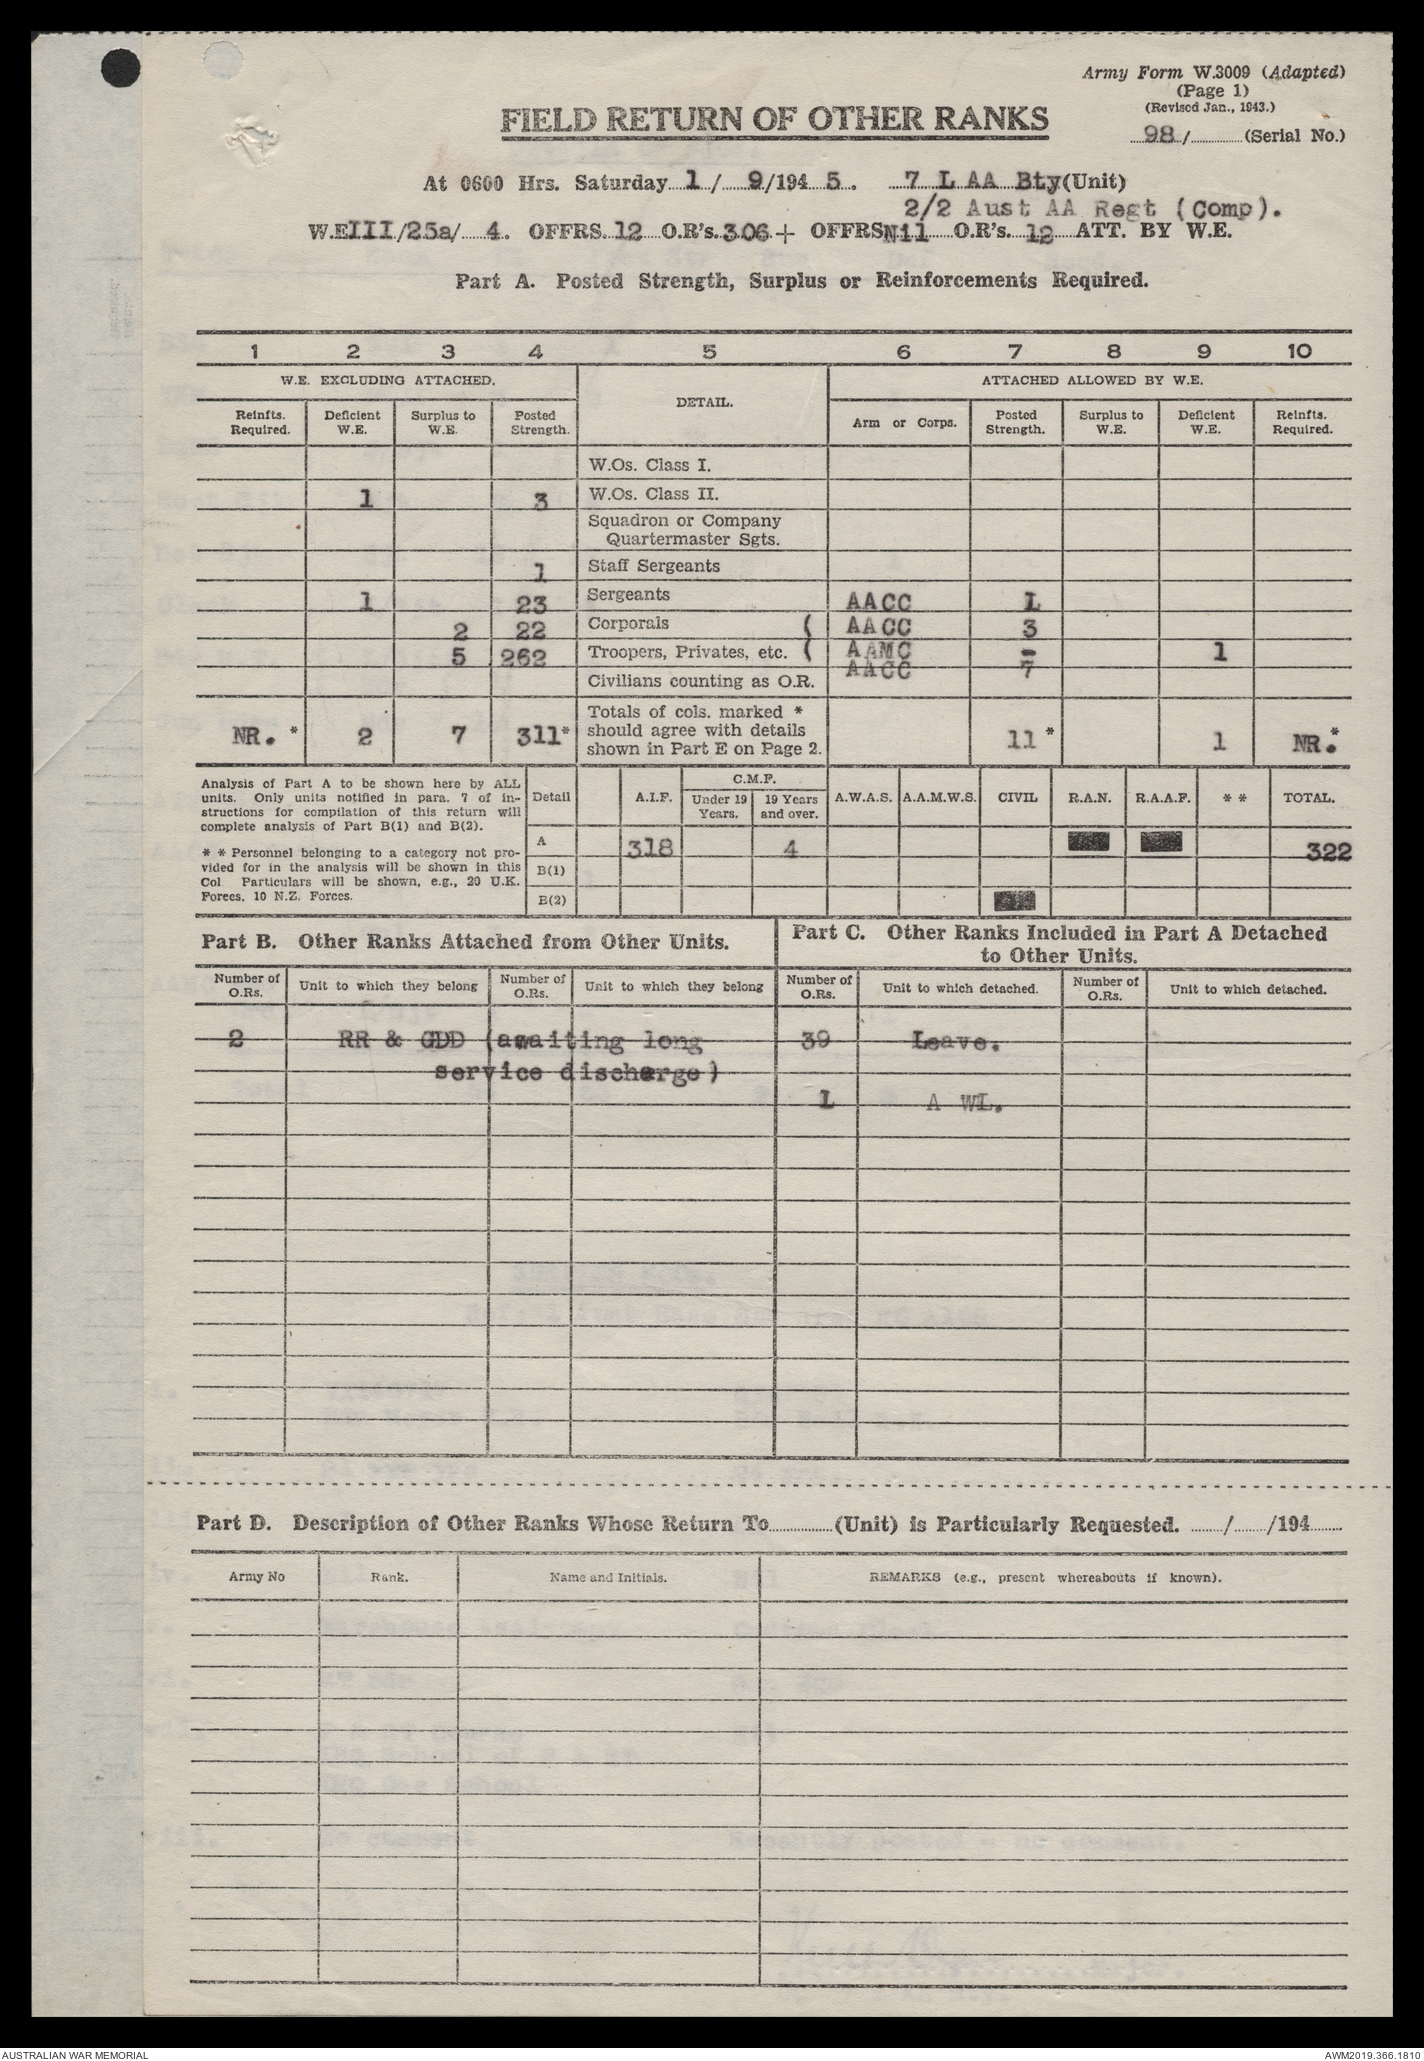 Army Form W.3009 (Adapted)
(Page 1)
(Revised Jan., 1943.)
98/ (Serial No.)
FIELD RETURN OF OTHER RANKS
At 0600 Hrs. Saturday 1 / 9/194 5. 7 L AA Bty(Unit)
2/2 Aust AA Regt (Comp).
W.E III/25a/ 4. OFFRS. 12 O.R's. 306 + OFFRS Nil O.R's. 12 ATT. BY W.E.
Part A. Posted Strength, Surplus or Reinforcements Required.
1 2 3 4 5 6 7 8 9 10
W.E. EXCLUDING ATTACHED. DETAIL. ATTACHED ALLOWED BY W.E.
Reinfts. Required. Deficient W.E. Surplus to W.E. Posted Strength. Arm or Corps. Posted Strength. Surplus to W.E. Deficient W.E. Reinfts. Required.
W.Os. Class I.
1 3 W.Os. Class II.
Squadron or Company
Quartermaster Sgts.
1 Staff Sergeants
1 23 Sergeants AACC 1
2 22 Corporals ( AACC 3
5 262 Troopers, Privates, etc. ( AAMC - 1
AACC 7
Civilians counting as O.R.
NR. * 2 7 311* Totals of cols. marked * should agree with details shown in Part E on Page 2. 11 * 1 NR.*
Analysis of Part A to be shown here by ALL
units. Only units notified in para. 7 of in-
structions for compilation of this return will
complete analysis of Part B(1) and B(2).
* * Personnel belonging to a category not pro-
vided for in the analysis will be shown in this
Col Particulars will be shown, e.g., 20 U.K.
Forces, 10 N.Z. Forces.
Detail A.I.F. C.M.F. Under 19 Years. 19 Years and over. A.W.A.S. A.A.M.W.S. CIVIL R.A.N. R.A.A.F. * * TOTAL.
A 318 4 322
B(1)
B(2)
Part B. Other Ranks Attached from Other Units.
Part C. Other Ranks Included in Part A Detached
to Other Units.
Number of O.Rs. Unit to which they belong Number of O.Rs. Unit to which they belong Number of O.Rs. Unit to which detached. Number of O.Rs. Unit to which detached.
2 RR & GDD (awaiting long 39 Leave.
service discharge)
1 A WL.
Part D. Description of Other Ranks Whose Return To (Unit) is Particularly Requested. / /194
Army No Rank. Name and Initials. REMARKS (e.g., present whereabouts if known).
AUSTRALIAN WAR MEMORIAL AWM2019.366.1810